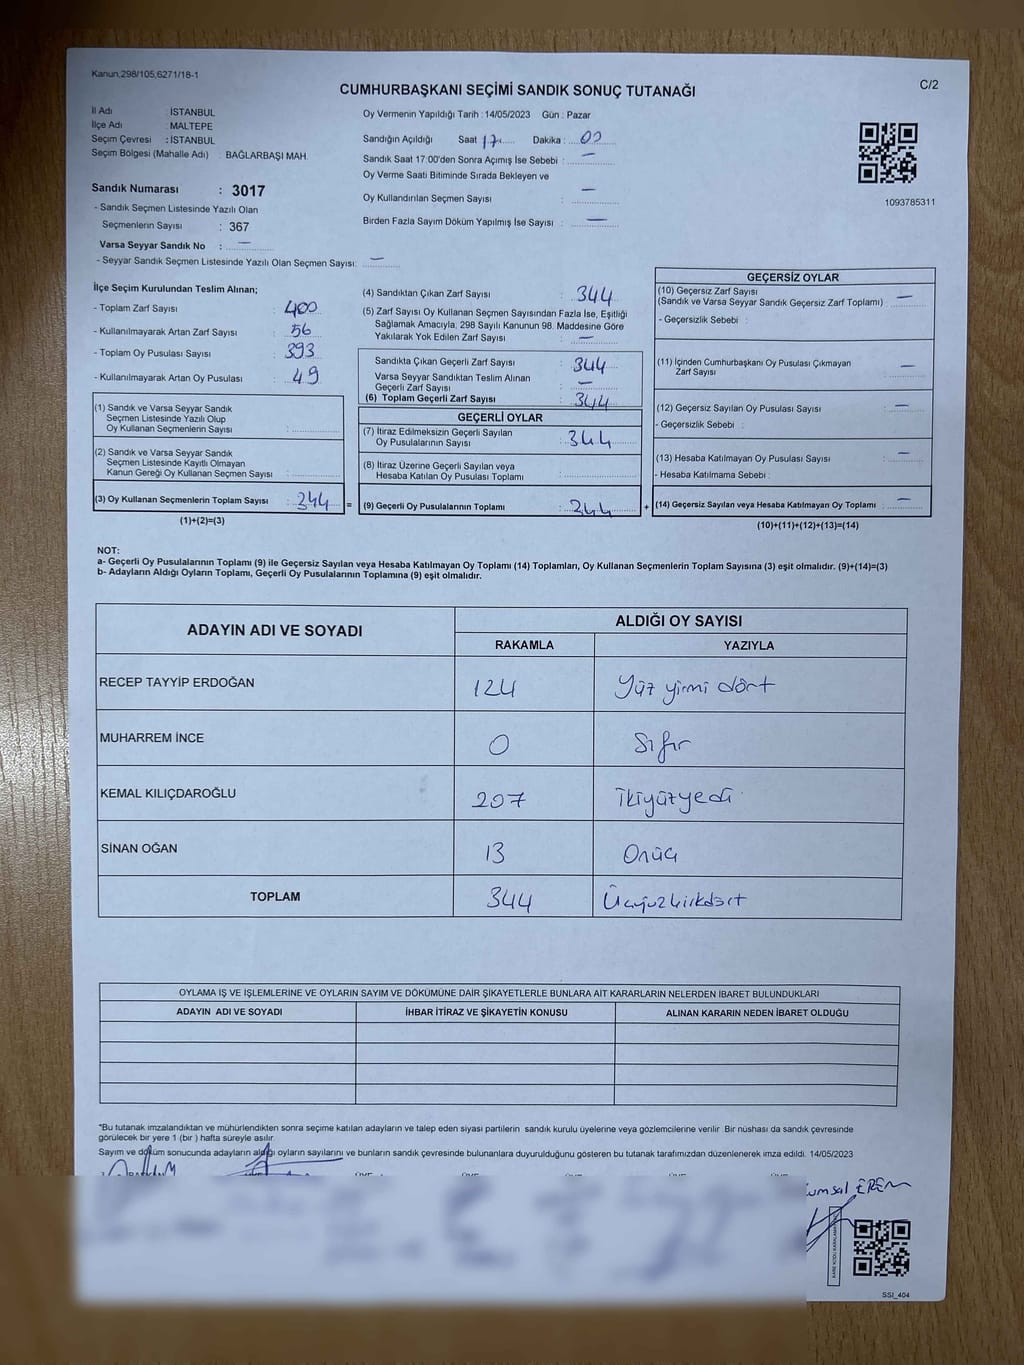 Kanun,298/105,6271/18-1
C/2
CUMHURBAŞKANI SEÇİMİ SANDIK SONUÇ TUTANAĞI
İl Adı : İSTANBUL
İlçe Adı : MALTEPE
Seçim Çevresi : İSTANBUL
Seçim Bölgesi (Mahalle Adı) : BAĞLARBAŞI MAH.
Sandık Numarası : 3017
- Sandık Seçmen Listesinde Yazılı Olan
Seçmenlerin Sayısı : 367
Varsa Seyyar Sandık No : —
- Seyyar Sandık Seçmen Listesinde Yazılı Olan Seçmen Sayısı: —
Oy Vermenin Yapıldığı Tarih : 14/05/2023 Gün : Pazar
Sandığın Açıldığı Saat 17 Dakika : 00
Sandık Saat 17:00'den Sonra Açımış İse Sebebi : —
Oy Verme Saati Bitiminde Sırada Bekleyen ve
Oy Kullandırılan Seçmen Sayısı : —
Birden Fazla Sayım Döküm Yapılmış İse Sayısı : —
1093785311
İlçe Seçim Kurulundan Teslim Alınan;
- Toplam Zarf Sayısı : 400
- Kullanılmayarak Artan Zarf Sayısı : 56
- Toplam Oy Pusulası Sayısı : 393
- Kullanılmayarak Artan Oy Pusulası : 49
(1) Sandık ve Varsa Seyyar Sandık
Seçmen Listesinde Yazılı Olup
Oy Kullanan Seçmenlerin Sayısı :
(2) Sandık ve Varsa Seyyar Sandık
Seçmen Listesinde Kayıtlı Olmayan
Kanun Gereği Oy Kullanan Seçmen Sayısı :
(3) Oy Kullanan Seçmenlerin Toplam Sayısı : 344 =
(1)+(2)=(3)
(4) Sandıktan Çıkan Zarf Sayısı : 344
(5) Zarf Sayısı Oy Kullanan Seçmen Sayısından Fazla İse, Eşitliği
Sağlamak Amacıyla; 298 Sayılı Kanunun 98. Maddesine Göre
Yakılarak Yok Edilen Zarf Sayısı : —
Sandıkta Çıkan Geçerli Zarf Sayısı : 344
Varsa Seyyar Sandıktan Teslim Alınan
Geçerli Zarf Sayısı : —
(6) Toplam Geçerli Zarf Sayısı : 344
GEÇERLİ OYLAR
(7) İtiraz Edilmeksizin Geçerli Sayılan
Oy Pusulalarının Sayısı : 344
(8) İtiraz Üzerine Geçerli Sayılan veya
Hesaba Katılan Oy Pusulası Toplamı :
(9) Geçerli Oy Pusulalarının Toplamı : 344 +
GEÇERSİZ OYLAR
(10) Geçersiz Zarf Sayısı
(Sandık ve Varsa Seyyar Sandık Geçersiz Zarf Toplamı) : —
- Geçersizlik Sebebi :
(11) İçinden Cumhurbaşkanı Oy Pusulası Çıkmayan
Zarf Sayısı : —
(12) Geçersiz Sayılan Oy Pusulası Sayısı : —
- Geçersizlik Sebebi :
(13) Hesaba Katılmayan Oy Pusulası Sayısı : —
- Hesaba Katılmama Sebebi :
(14) Geçersiz Sayılan veya Hesaba Katılmayan Oy Toplamı : —
(10)+(11)+(12)+(13)=(14)
NOT:
a- Geçerli Oy Pusulalarının Toplamı (9) ile Geçersiz Sayılan veya Hesaba Katılmayan Oy Toplamı (14) Toplamları, Oy Kullanan Seçmenlerin Toplam Sayısına (3) eşit olmalıdır. (9)+(14)=(3)
b- Adayların Aldığı Oyların Toplamı, Geçerli Oy Pusulalarının Toplamına (9) eşit olmalıdır.
ADAYIN ADI VE SOYADI
ALDIĞI OY SAYISI
RAKAMLA YAZIYLA
RECEP TAYYİP ERDOĞAN 124 Yüz yirmi dört
MUHARREM İNCE 0 Sıfır
KEMAL KILIÇDAROĞLU 207 İkiyüzyedi
SİNAN OĞAN 13 Onüç
TOPLAM 344 Üçyüzkırkdört
OYLAMA İŞ VE İŞLEMLERİNE VE OYLARIN SAYIM VE DÖKÜMÜNE DAİR ŞİKAYETLERLE BUNLARA AİT KARARLARIN NELERDEN İBARET BULUNDUKLARI
ADAYIN ADI VE SOYADI İHBAR İTİRAZ VE ŞİKAYETİN KONUSU ALINAN KARARIN NEDEN İBARET OLDUĞU
*Bu tutanak imzalandıktan ve mühürlendikten sonra seçime katılan adayların ve talep eden siyasi partilerin sandık kurulu üyelerine veya gözlemcilerine verilir. Bir nüshası da sandık çevresinde
görülecek bir yere 1 (bir ) hafta süreyle asılır.
Sayım ve döküm sonucunda adayların aldığı oyların sayılarını ve bunların sandık çevresinde bulunanlara duyurulduğunu gösteren bu tutanak tarafımızdan düzenlenerek imza edildi. 14/05/2023
EREN
SSI_404